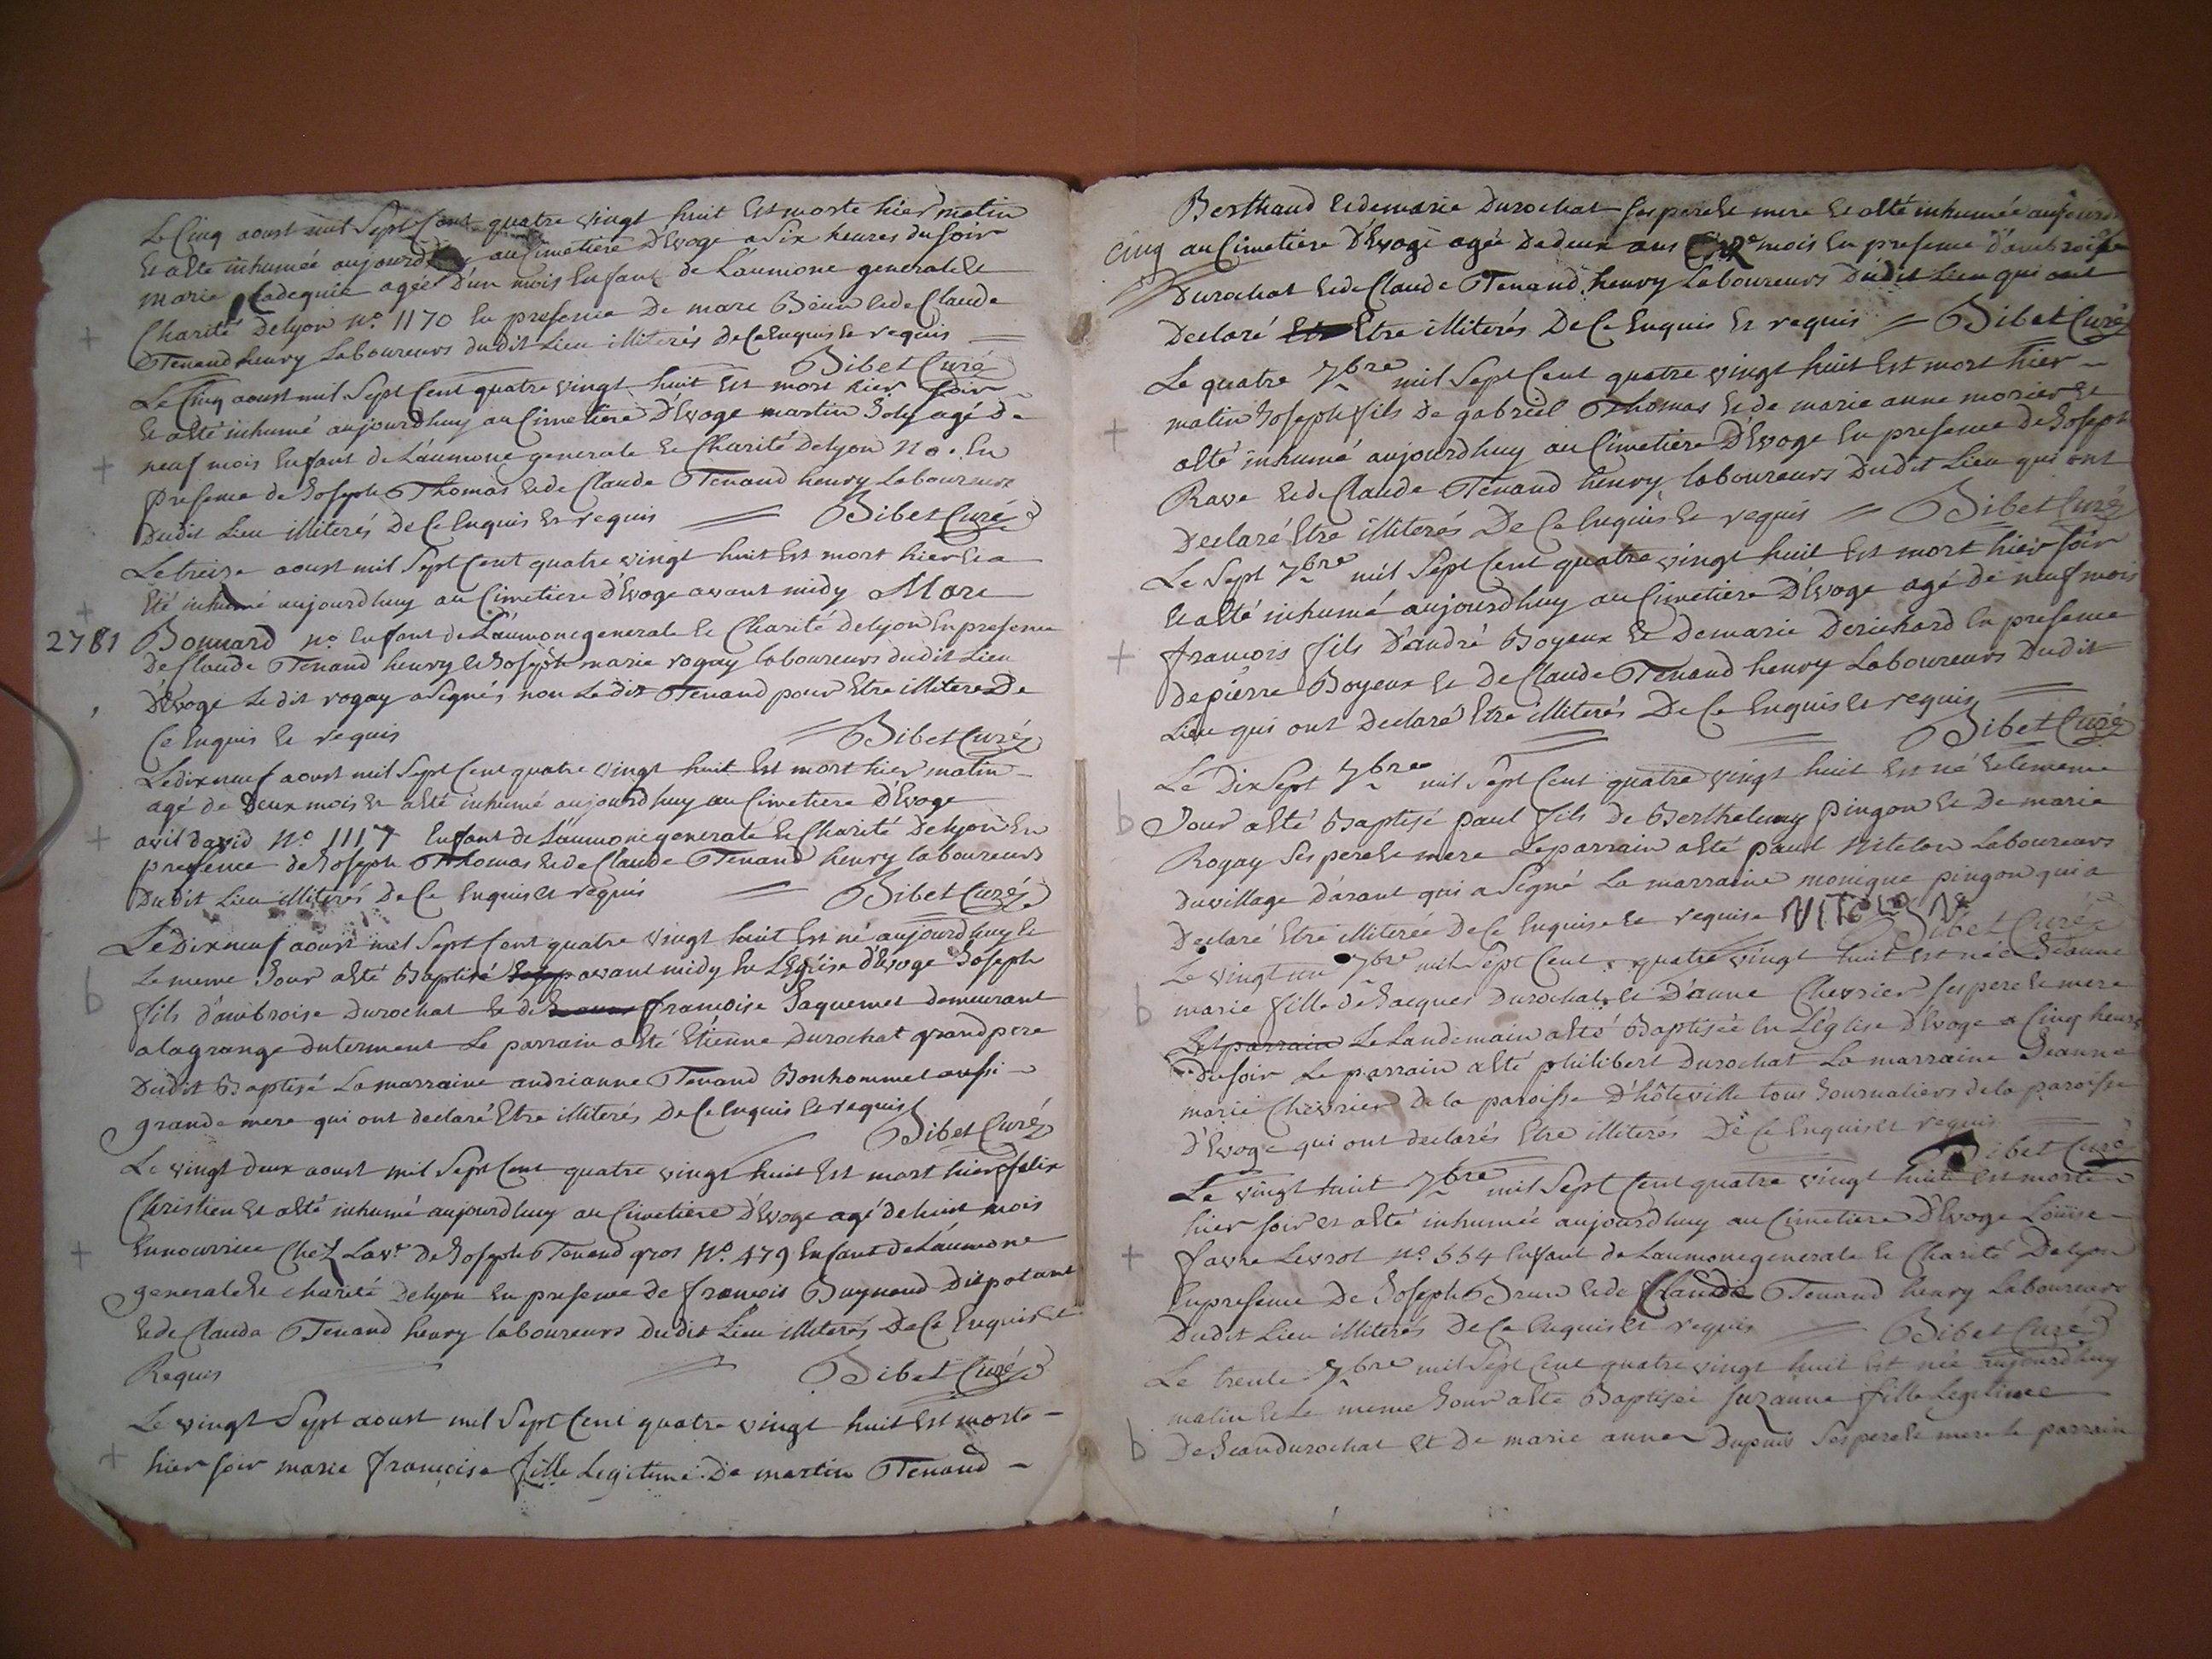 Le Cinq aoust mil Sept Cent quatre vingt huit Est morte hier matin
Et a Eté inhumée aujourdhuy au Cimetiere D'Evoge a Six heures du soir
marie agée D'un mois Enfant de L'aumone generale Et
Charité Delyon N.º 1170 En presence De marc Et de Claude
Tenand henry Laboureurs dudit Lieu illiterés de Ce Enquis Et requis
Bibet Curé
Le Cinq aoust mil Sept Cent quatre vingt huit Est mort hier soir
Et a Eté inhumé aujourdhuy au Cimetiere D'Evoge martin Joly agé De
neuf mois Enfant de L'aumone generale Et Charité Delyon N.º. En
presence de Joseph Thomas Et de Claude Tenand henry Laboureurs
Dudit Lieu illiterés De Ce Enquis Et requis Bibet Curé
Le treize aoust mil Sept Cent quatre vingt huit Est mort hier Et a
Eté inhumé aujourdhuy au Cimetiere D'Evoge avant midy Marc
2781 Bonnard N.º Enfant de L'aumone generale Et Charité Delyon En presence
De Claude Tenand henry Et Joseph marie rogay laboureurs dudit Lieu
D'Evoge Le dit rogay a Signés, non Le dit Tenand pour Etre illiteré De
Ce Enquis Et requis Bibet Curé
Le dix neuf aoust mil Sept Cent quatre vingt huit Est mort hier matin
agé de Deux mois Et a Eté inhumé aujourdhuy au Cimetiere D'Evoge
david N.º 1117 Enfant de L'aumone generale Et Charité Delyon En
presence de Joseph Thomas Et de Claude Tenand henry laboureurs
Dudit Lieu illiterés De Ce Enquis Et requis Bibet Curé
Le Dix neuf aoust mil Sept Cent quatre vingt huit Est né aujourdhuy Et
b Le meme Jour a Eté Baptisé avant midy En L'Eglise d'Evoge Joseph
fils d'ambroise Durochat Et de francoise Jaquemet demeurant
a lagrange duterment Le parrain a Eté Etienne Durochat grand pere
Dudit Baptisé La marraine andrianne Tenand Bonhommet aussi
grande mere qui ont declaré Etre illiterés De Ce Enquis Et requis
Bibet Curé
Le vingt deux aoust mil Sept Cent quatre vingt huit Est mort hier felix
Christien Et a Eté inhumé aujourdhuy au Cimetiere D'Evoge agé de huit mois
En nourrice Chez La v.e De Joseph Tenand gros N.º 479 Enfant de L'aumone
generale Et charité Delyon En presence de francois Buynand Dit potant
Et de Claude Tenand henry laboureurs Dudit Lieu illiterés De Ce Enquis Et
Requis Bibet Curé
Le vingt Sept aoust mil Sept Cent quatre vingt huit Est morte
hier soir marie francoise fille Legitime De martin Tenand
Berthaud Et de marie Durochat ses pere Et mere Et a Eté inhumée
Cinq au Cimetiere D'Evoge agée De deux ans mois En presence D'ambroise
Durochat Et de Claude Tenand henry Laboureurs Dudit Lieu qui ont
Declaré Etre illiterés De Ce Enquis Et requis Bibet Curé
Le quatre 7bre mil Sept Cent quatre vingt huit Est mort hier
matin Joseph fils De gabriel Thomas Et de marie anne morier Et
a Eté inhumé aujourdhuy au Cimetiere D'Evoge En presence de Joseph
Rave Et de Claude Tenand henry laboureurs Dudit Lieu qui ont
Declaré Etre illiterés De Ce Enquis Et requis Bibet Curé
Le Sept 7bre mil Sept Cent quatre vingt huit Est mort hier soir
Et a Eté inhumé aujourdhuy au Cimetiere D'Evoge agé de neuf mois
francois fils D'andré Boyeux Et De marie Derichard En presence
De pierre Boyeux Et De Claude Tenand henry Laboureurs Dudit
Lieu qui ont Declaré Etre illiterés De Ce Enquis Et requis
Bibet Curé
Le Dix Sept 7bre mil Sept Cent quatre vingt huit Est né Et le meme
b Jour a Eté Baptisé paul fils de Berthelemy pingon Et De marie
Rogay Ses pere Et mere Le parrain a Eté paul Niteton Laboureurs
Du village D'arant qui a Signé La marraine monique pingon qui a
Declaré Etre illiterée De Ce Enquise Et requise Bibet Curé
Le vingt un 7bre mil Sept Cent quatre vingt huit Est née Jeanne
b marie fille De Jacques Durochat Et D'anne Chevrier ses pere Et mere
Et parrain Le Landemain a Eté Baptisée En L'Eglise D'Evoge a Cinq heures
Du soir Le parrain a Eté philibert Durochat La marraine Jeanne
marie Chevrier de la paroisse D'hôteville tous Journaliers de la paroisse
D'Evoge qui ont declarés Etre illiterés De Ce Enquis Et requis
Bibet Curé
Le vingt huit 7bre mil Sept Cent quatre vingt huit Est morte
hier soir Et a Eté inhumée aujourdhuy au Cimetiere D'Evoge Loüise
favre Levrot N.º 554 Enfant de L'aumone generale Et Charité Delyon
En presence De Joseph Brun Et de Claude Tenand henry Laboureurs
Dudit Lieu illiterés De Ce Enquis Et requis Bibet Curé
Le trente 7bre mil Sept Cent quatre vingt huit Est née aujourdhuy
matin Et Le meme Jour a Eté Baptisée Suzanne fille Legitime
b De Jean Durochat Et De marie anne Dupuis Ses pere Et mere Le parrain